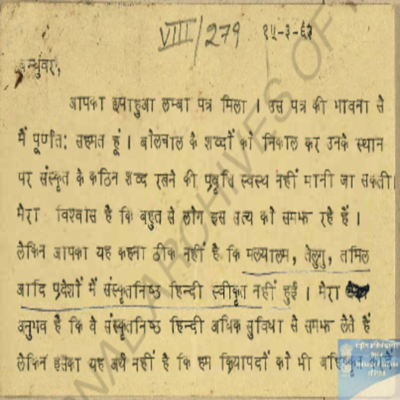 VIII/279 १५-३-६२
बन्धुवर,
आपका छपाहुआ लम्बा पत्र मिला । उस पत्र की भावना से
मैं पूर्णत: सहमत हूं । बोलचाल के शब्दों को निकाल कर उनके स्थान
पर संस्कृत के कठिन शब्द रखने की प्रवृत्ति स्वस्थ नहीं मानी जा सकती।
मेरा विश्वास है कि बहुत से लोग इस सत्य को समझ रहे हैं ।
लेकिन आपका यह कहना ठीक नहीं है कि मलयालम, तेलुगु, तमिल
आदि प्रदेशों में संस्कृतनिष्ठ हिन्दी स्वीकृत नहीं हुई । मेरा
अनुभव है कि वे संस्कृतनिष्ठ हिन्दी अधिक सुविधा से समझ लेते हैं
लेकिन इसका यह अर्थ नहीं है कि हम क्रियापदों को भी